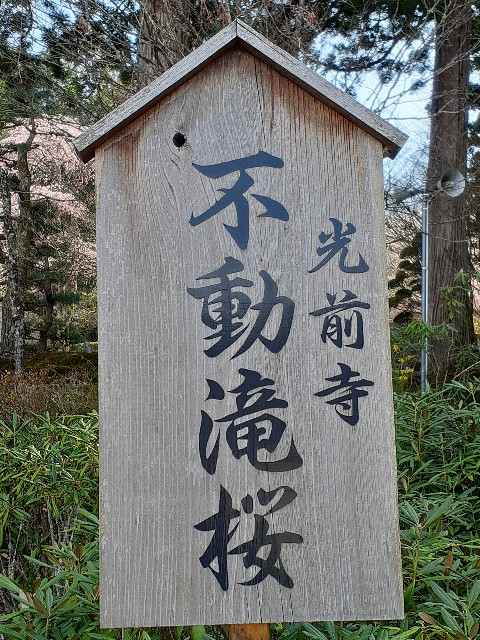 光前寺
不動滝桜